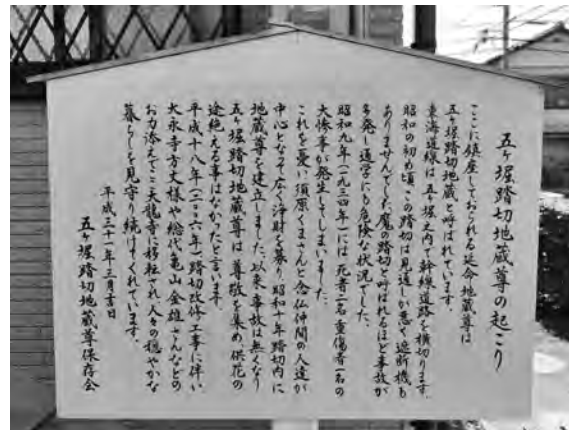 五ヶ堀踏切地蔵尊の起こり
ここに鎮座しておられる延命地蔵尊は
五ヶ堀踏切地蔵と呼ばれています。
東海道線は五ヶ堀之内で幹線道路を横切ります。
昭和の初め頃、この踏切は見通しが悪く遮断機も
ありませんでした。魔の踏切と呼ばれるほど事故が
多発し通学にも危険な状況でした。
昭和九年(一九三四年)には死者二名重傷者一名の
大惨事が発生してしまいました。
これを憂い、須原くまさんと念仏仲間の人達が
中心となって広く浄財を募り、昭和十年踏切内に
地蔵尊を建立しました。以来、事故は無くなり
五ヶ堀踏切地蔵尊は尊敬を集め、供花の
途絶える事はなかったと言います。
平成十八年(二〇〇六年)踏切改修工事に伴い
大永寺方丈様や総代亀山金雄さんなどの
お力添えでここ天龍寺に移転され人々の穏やかな
暮らしを見守り続けてくれています。
平成二十一年三月吉日
五ヶ堀踏切地蔵尊保存会